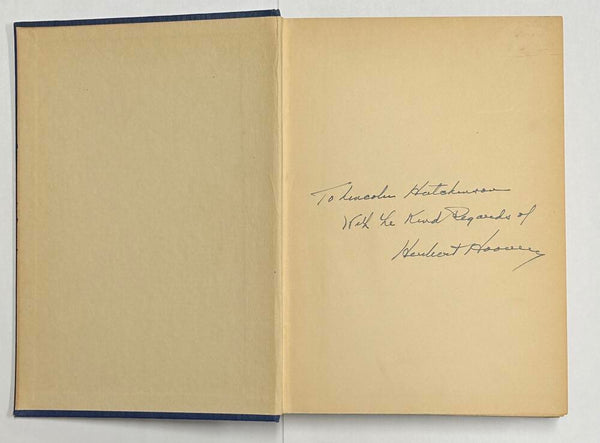 To Lincoln Hutchinson
With the Kind Regards of
Herbert Hoover